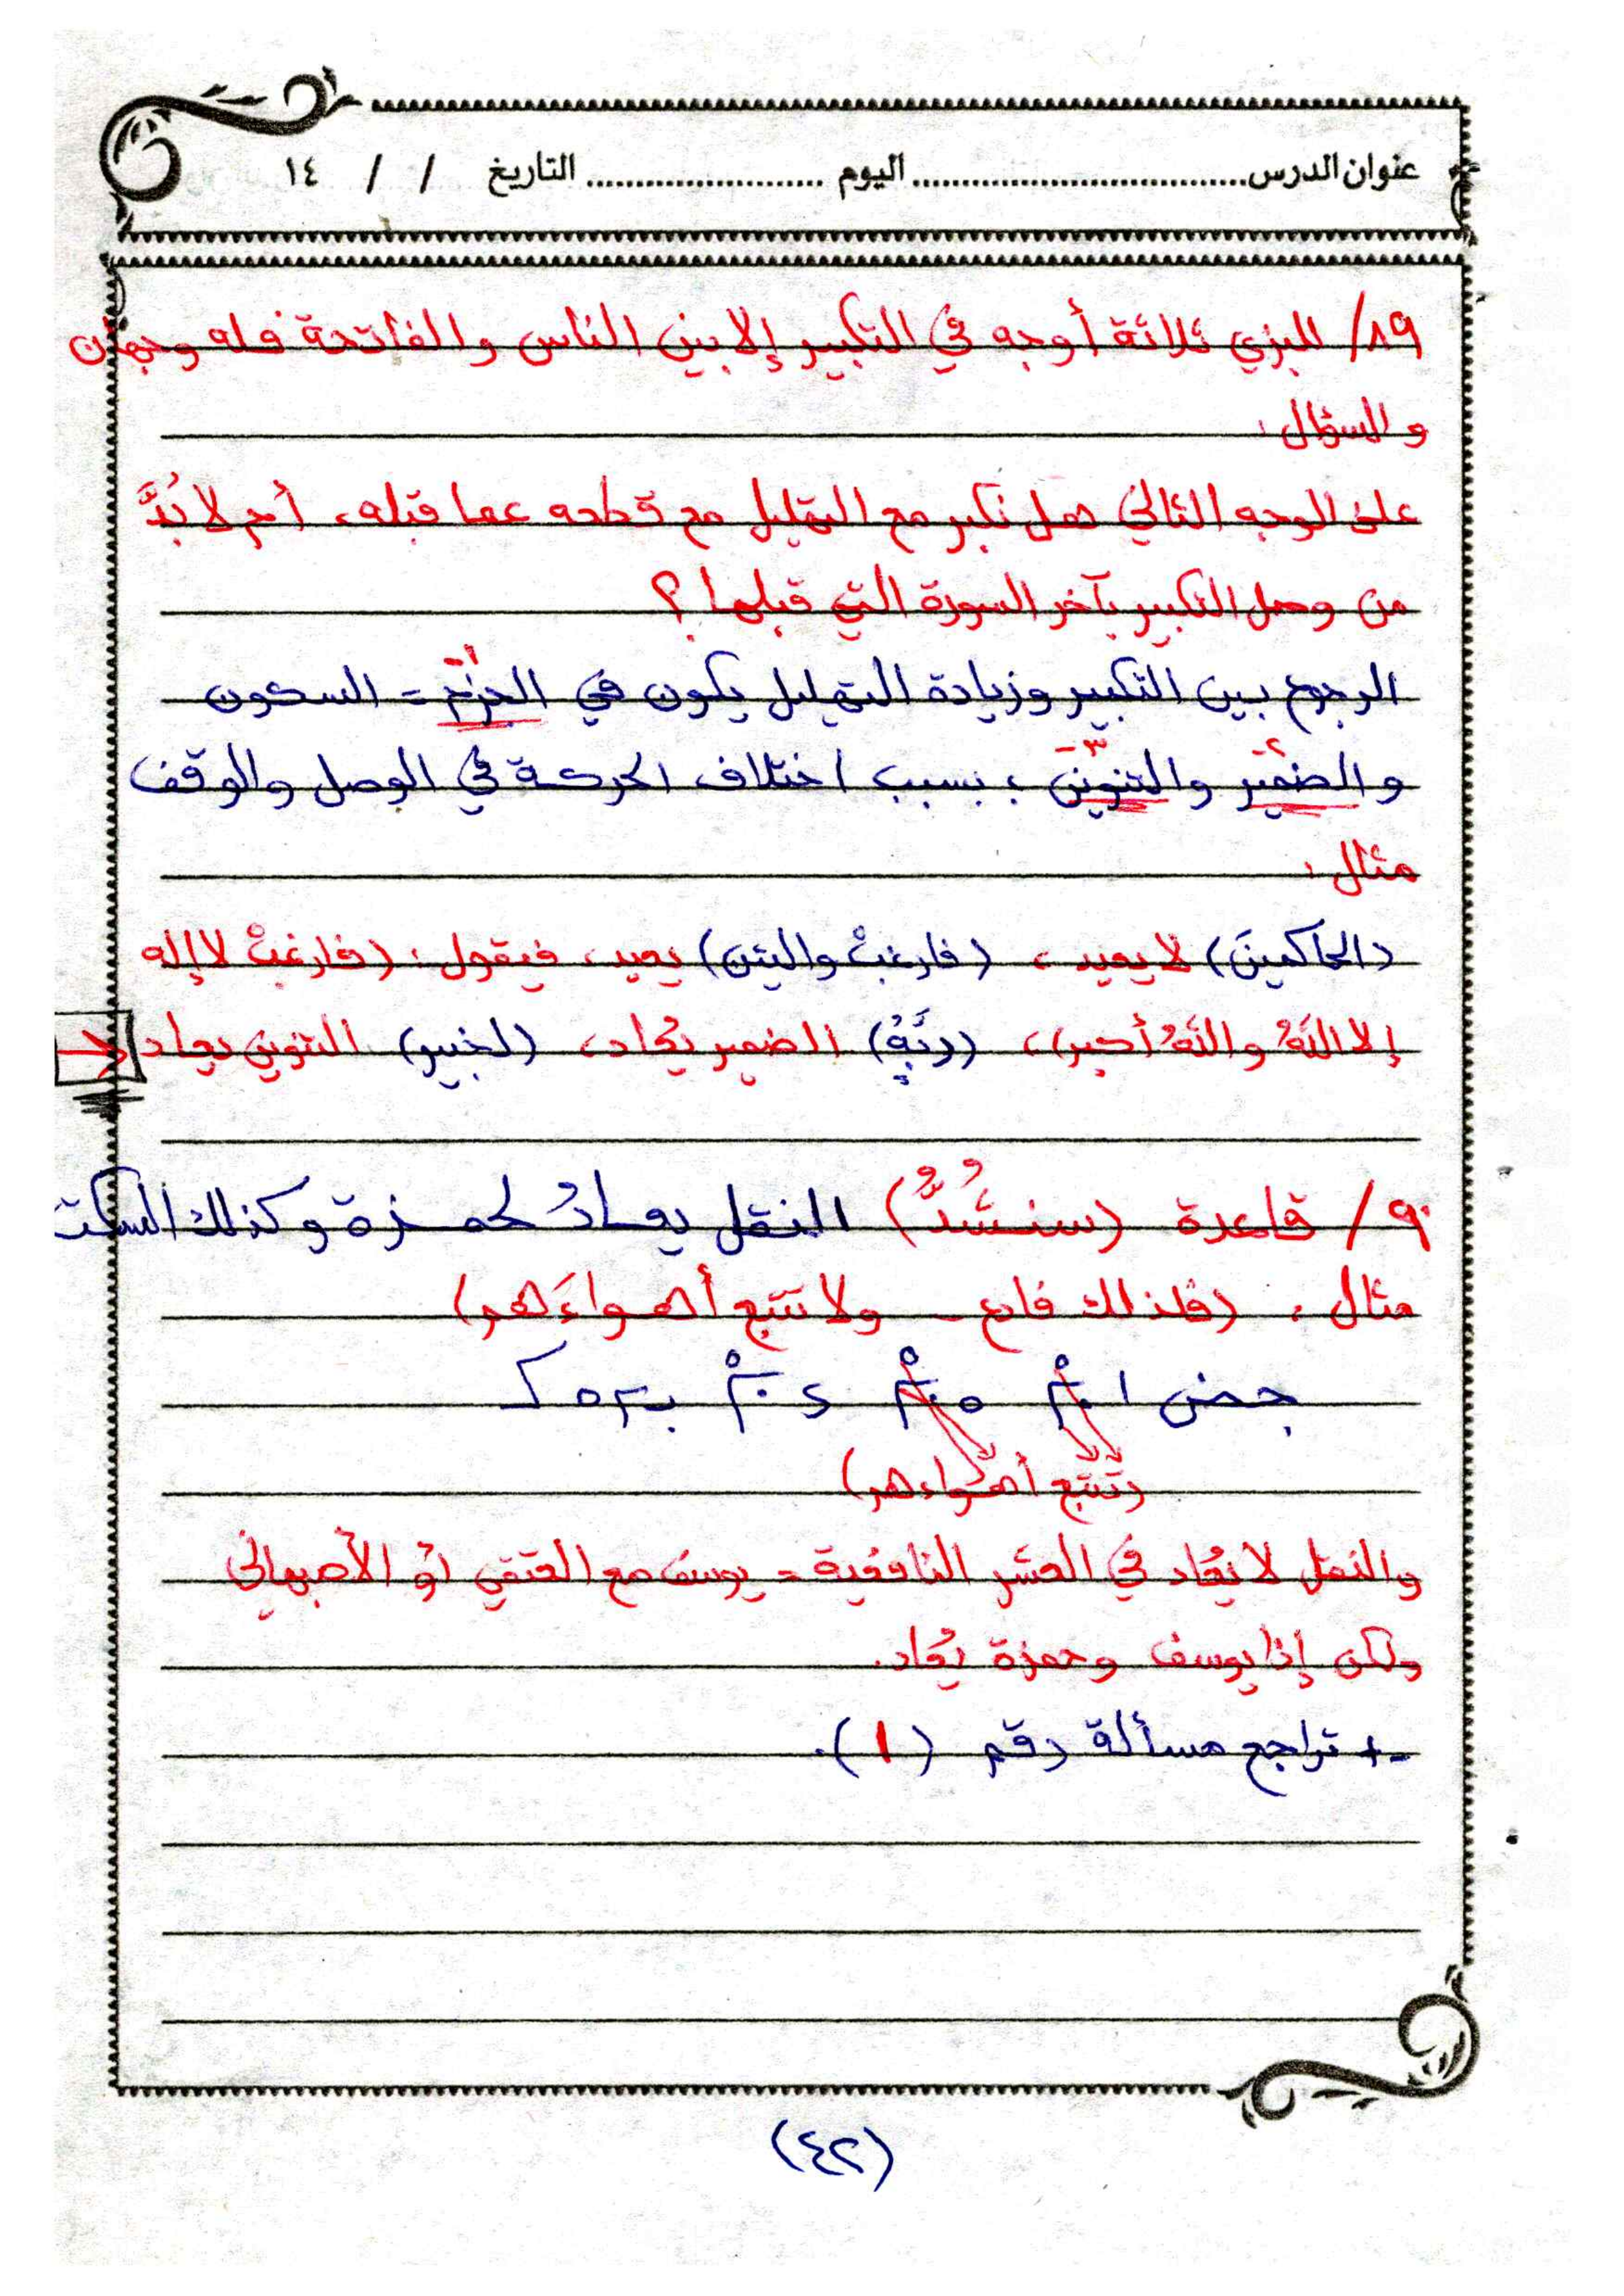 عنوان الدرس................................. اليوم ....................... التاريخ / / ١٤
٨٩/ للبزي ثلاثة أوجه في التكبير إلا بين الناس والفاتحة فله وجهان
والسؤال:
على الوجه الثاني هل نكبر مع التهليل مع قطعه عما قبله، أم لا بُدَّ
من وصل التكبير بآخر السورة التي قبلها؟
الرجوع بين التكبير وزيادة التهليل يكون في الجزم = السكون
والضمير والتنوين ؛ بسبب اختلاف الحركة في الوصل والوقف
مثال:
(الحاكمينَ) لا يعيد، (فارغبْ والتين) يعيد، فيقول: (فارغبْ لا إله
إلا اللهُ واللهُ أكبر)، (ربَّهُ) الضمير يُعاد، (لخبير) التنوين يعاد
٩٠/ قاعدة (سنشُدُّ) النقل يعادُ لحمزة وكذلك السكت
مثال: (فلذلك فادع ـ ولا تتبع أهواءَهم)
(تتَّبع أهواءهم)
والنقل لا يُعاد في العشر النافعية = يوسف مع العتقي أو الأصبهاني
ولكن إذا يوسف وحمزة يُعاد.
+ تراجع مسألة رقم (١).
(٤٢)